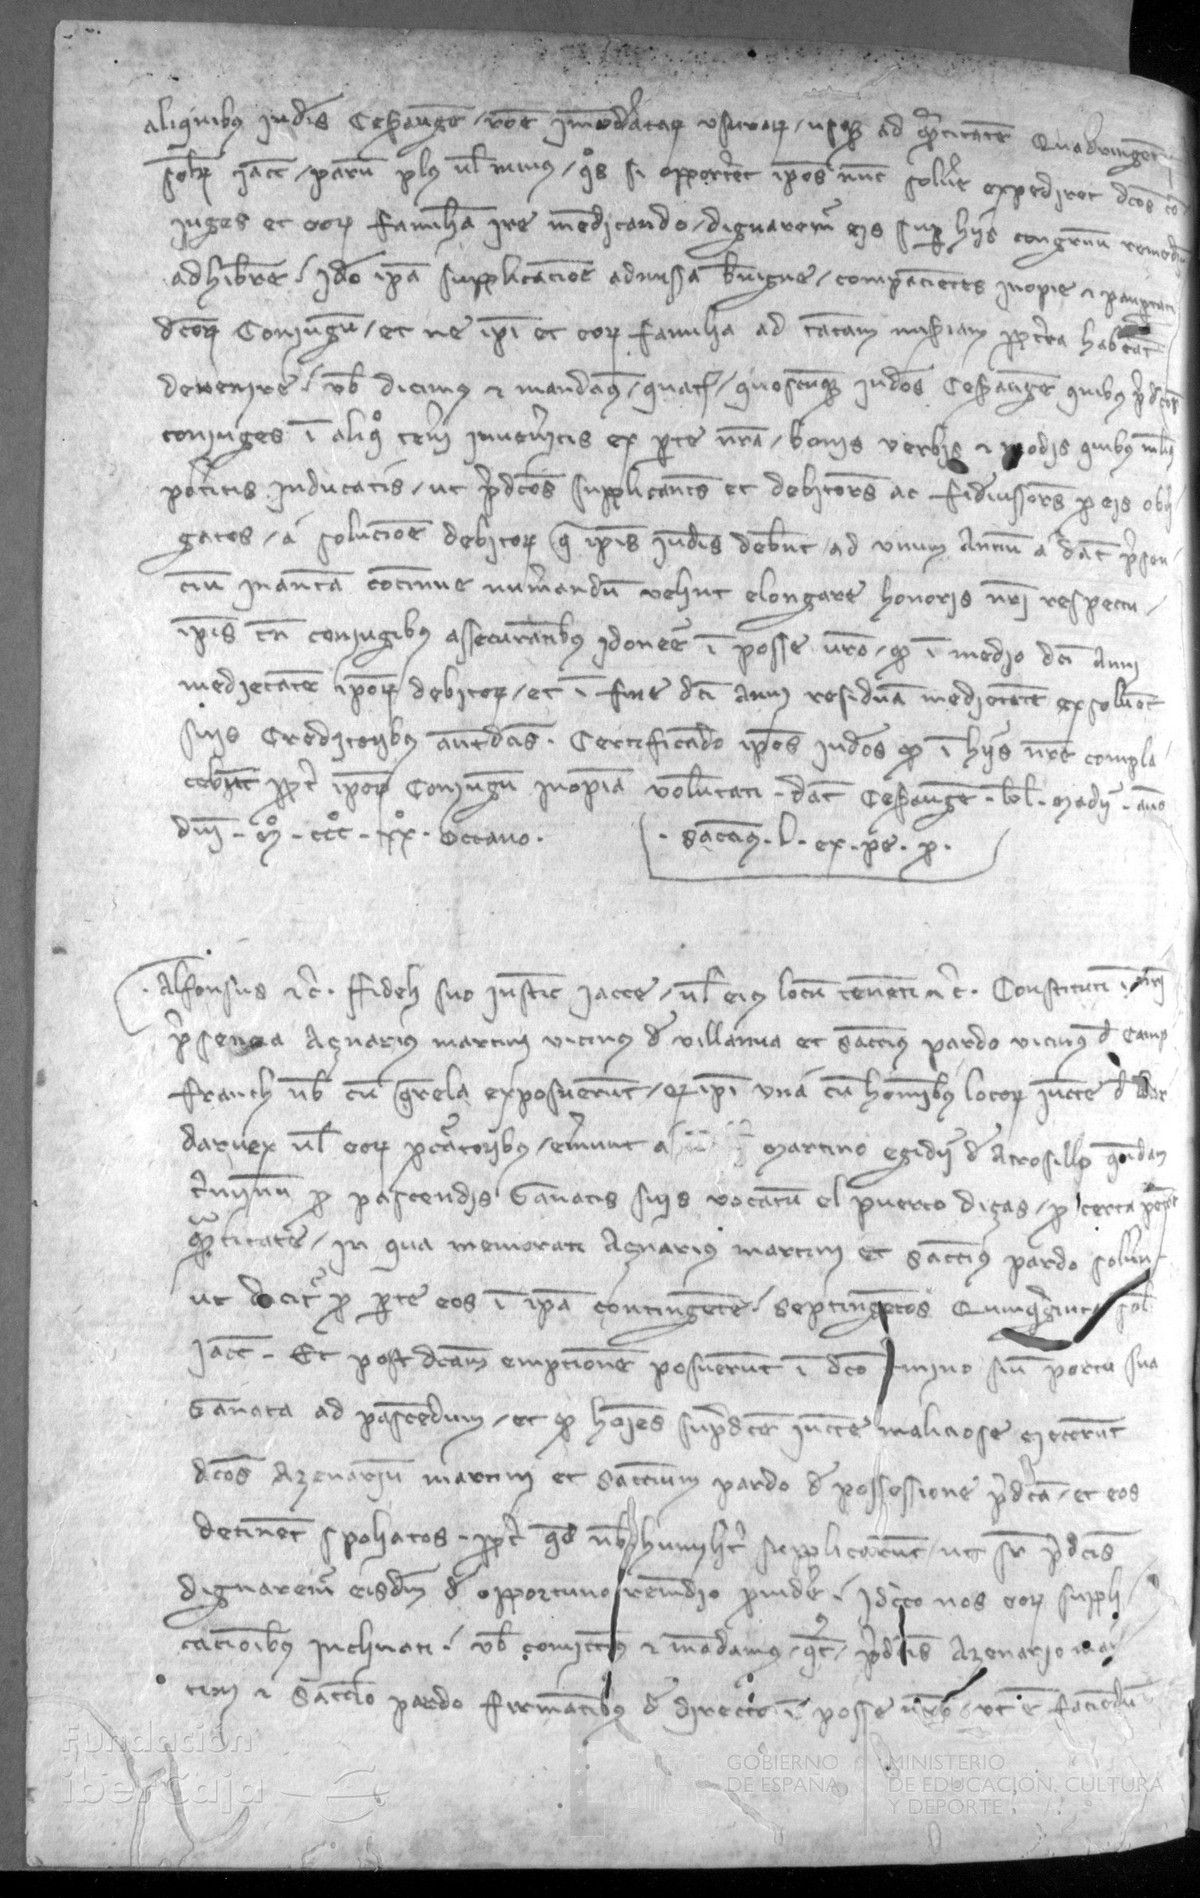 aliquibus iudeis Cesarauguste / racione immoderatarum usurarum / usque ad quantitatem Quadringentorum
solidorum iaccensium / parum plus vel minus / quos si opporteret ipsos nunc solvere expediret dictos con
iuges et eorum familiam ire mendicando / dignaremur eis super hiis congruum remedium
adhibere / Ideo ipsa supplicacione admissa benigne / compacientes inopie et paupertati
dictorum Coniugum / et ne ipsi et eorum familia ad tantam miseriam propterea habeant
devenire / vobis dicimus et mandamus / quatenus / quoscumque iudeos Cesarauguste quibus predictos
coniuges in aliquo teneri inveneritis ex parte nostra / bonis verbis et modis quibus melius
poteritis inducatis / ut predictos supplicantes et debitores ac fideiussores pro eis obli
gatos / a solucione debitorum que ipsis iudeis debent / ad unum Annum a data presen
cium inantea continue numerandum velint elongare honoris nostri respectu /
ipsis tamen coniugibus assecurantibus idonee in posse vestro / quod in medio dicti Anni
medietatem ipsorum debitorum / et in fine dicti Anni residuam medietatem exsolvent
suis Creditoribus antedictis . Certificando ipsos iudeos quod in hiis nostre compla
cebunt propter ipsorum Coniugum inopiam voluntati . data Cesarauguste . madii . anno
domini . Mº . CCCº . XXº . Octavo .
. Sancius . L . ex . parte . p .
. Alfonsus etc . Fideli suo iusticie Iacce / vel eius locum tenenti etc . Constituti in nostri
presencia Aznarius martini vicinus de villanua et Sanccius pardo vicinus de Camp
franch nobis cum querela exposuerunt / quod ipsi una cum hominibus locorum iuncte de
darues vel eorum procuratoribus / emerunt a martino egidii de Atrosillo quendam
terminum pro pascendis Ganatis suis vocatum el puerto digas / pro certa peccunie
quantitate / In qua memorati Aznarius martini et Sanccius pardo solverunt
ut dicitur pro parte eos in ipsa contingente / Septingentos Quinquaginta solidos
iaccenses . Et post dictam emptionem posuerunt in dicto termino sive portu sua
Ganata ad pascendum / et quod homines supradicte iuncte maliciose eiecerunt
dictos Azenarium martini et Sanccium pardo de possessione predicta / et eos
detinent spoliatos . propter quod nobis humiliter supplicarunt / ut super predictis
dignaremur eisdem de opportuno remedio providere / Idcirco nos eorum suppli
cacionibus inclinati / vobis comittimus et mandamus / quatenus / predictis Azenario mar
tini et Sanccio pardo firmantibus de directo in posse vestro / ut est faciendum
Fundación
iberCaja
GOBIERNO
DE ESPAÑA
MINISTERIO
DE EDUCACIÓN, CULTURA
Y DEPORTE